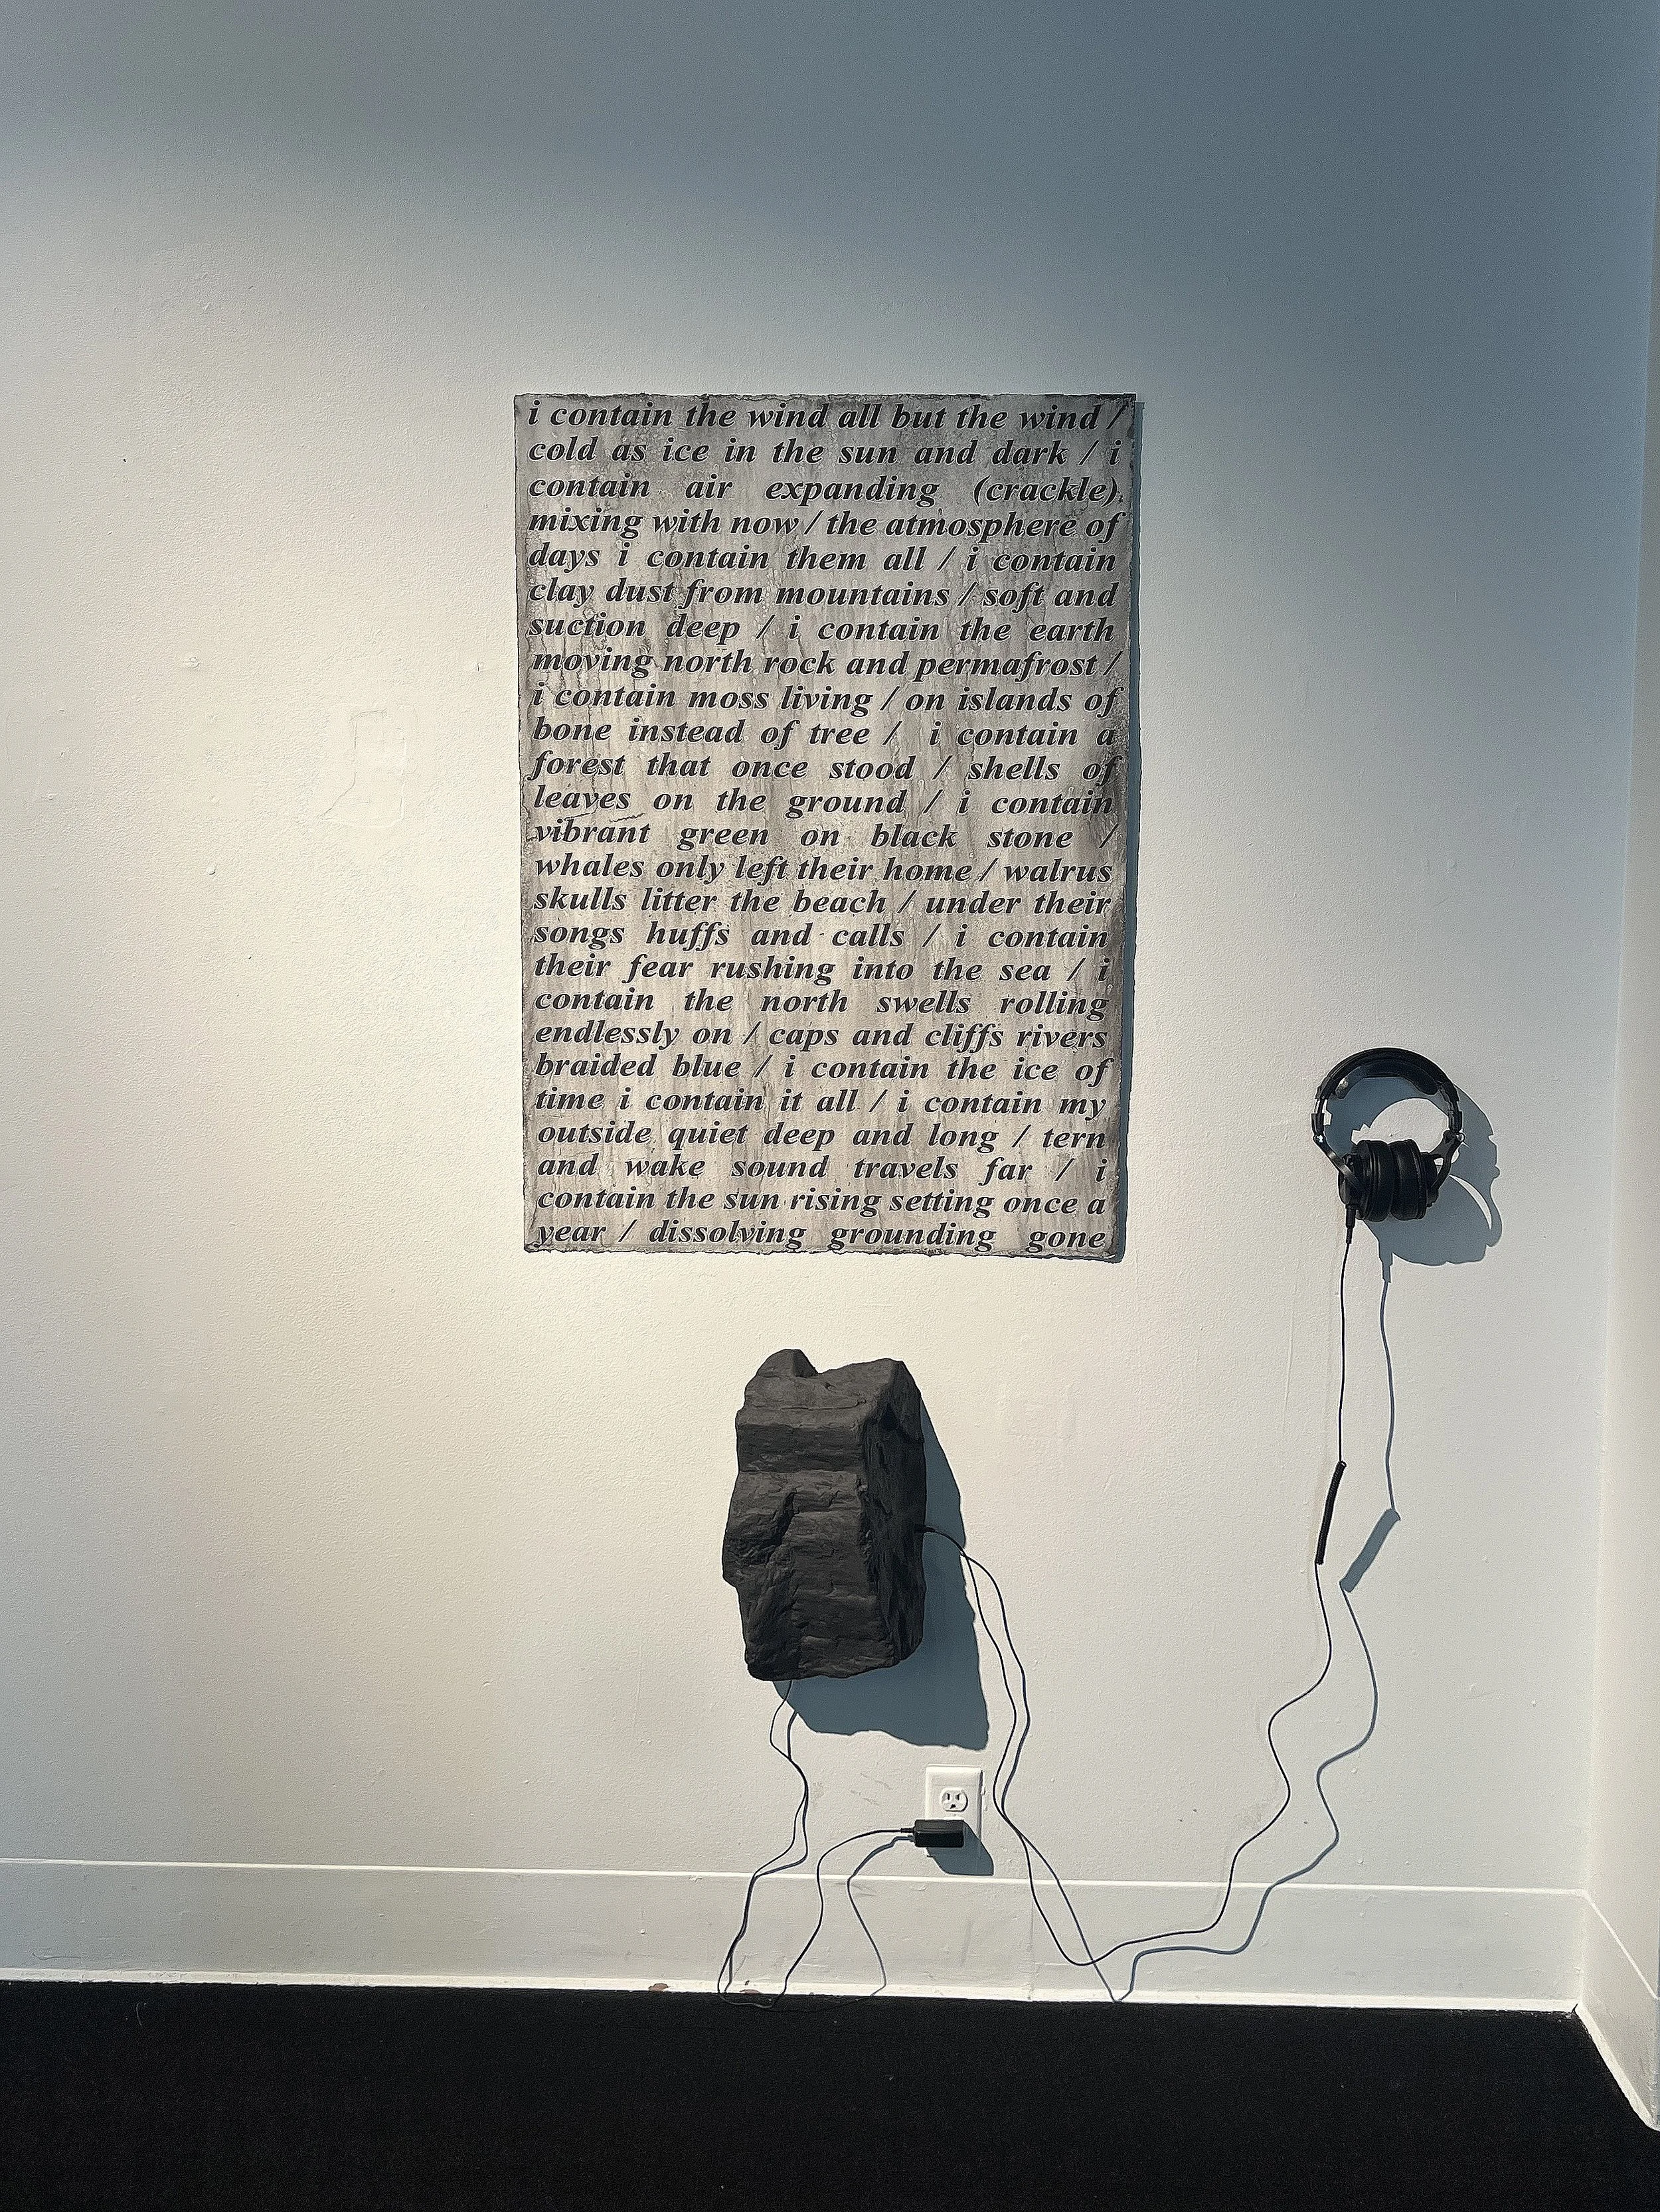 i contain the wind all but the wind /
cold as ice in the sun and dark / i
contain air expanding (crackle)
mixing with now / the atmosphere of
days i contain them all / i contain
clay dust from mountains / soft and
suction deep / i contain the earth
moving north rock and permafrost /
i contain moss living / on islands of
bone instead of tree / i contain a
forest that once stood / shells of
leaves on the ground / i contain
vibrant green on black stone /
whales only left their home / walrus
skulls litter the beach / under their
songs huffs and calls / i contain
their fear rushing into the sea / i
contain the north swells rolling
endlessly on / caps and cliffs rivers
braided blue / i contain the ice of
time i contain it all / i contain my
outside quiet deep and long / tern
and wake sound travels far / i
contain the sun rising setting once a
year / dissolving grounding gone